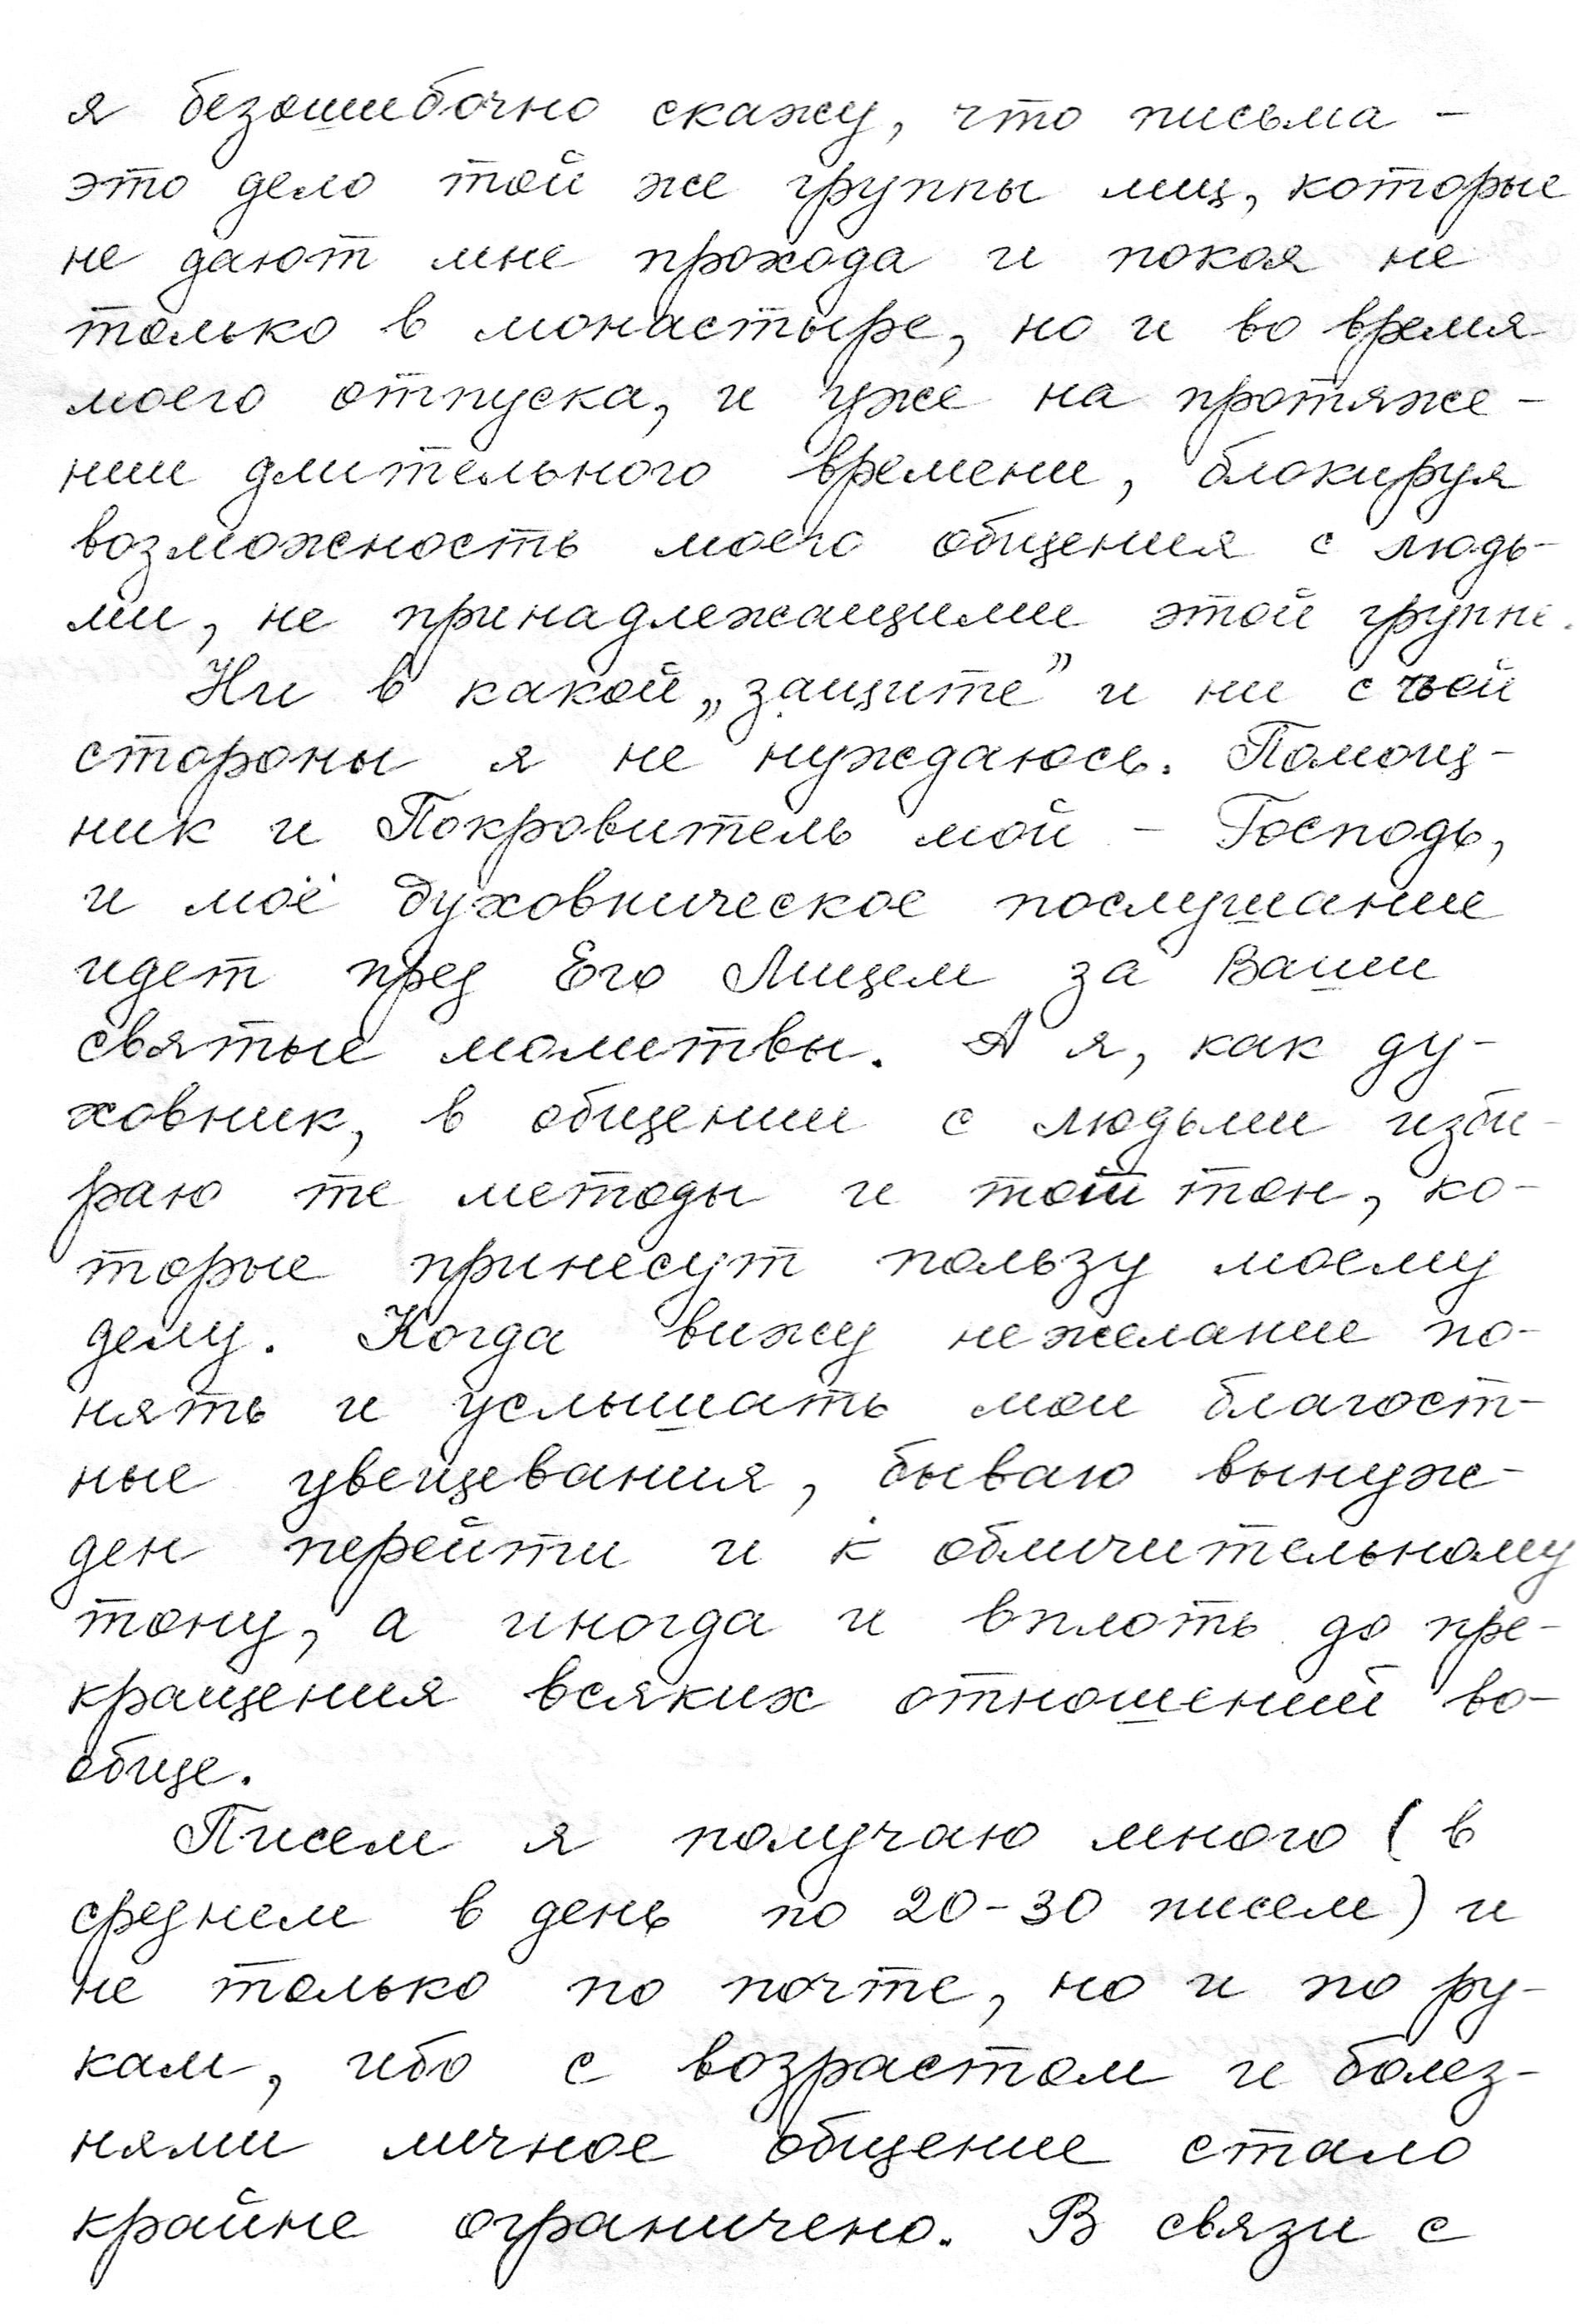 я безошибочно скажу, что письма –
это дело той же группы лиц, которые
не дают мне прохода и покоя не
только в монастыре, но и во время
моего отпуска, и уже на протяже-
нии длительного времени, блокируя
возможность моего общения с людь-
ми, не принадлежащими этой группе.
Ни в какой „защите” и ни с чьей
стороны я не нуждаюсь. Помощ-
ник и Покровитель мой – Господь,
и моё духовническое послушание
идет пред Его Лицем за Ваши
святые молитвы. А я, как ду-
ховник, в общении с людьми изби-
раю те методы и той тон, ко-
торые принесут пользу моему
делу. Когда вижу нежелание по-
нять и услышать мои благост-
ные увещевания, бываю вынуж-
ден перейти и к обличительному
тону, а иногда и вплоть до пре-
кращения всяких отношений во-
обще.
Писем я получаю много (в
среднем в день по 20-30 писем) и
не только по почте, но и по ру-
кам, ибо с возрастом и болез-
нями личное общение стало
крайне ограничено. В связи с